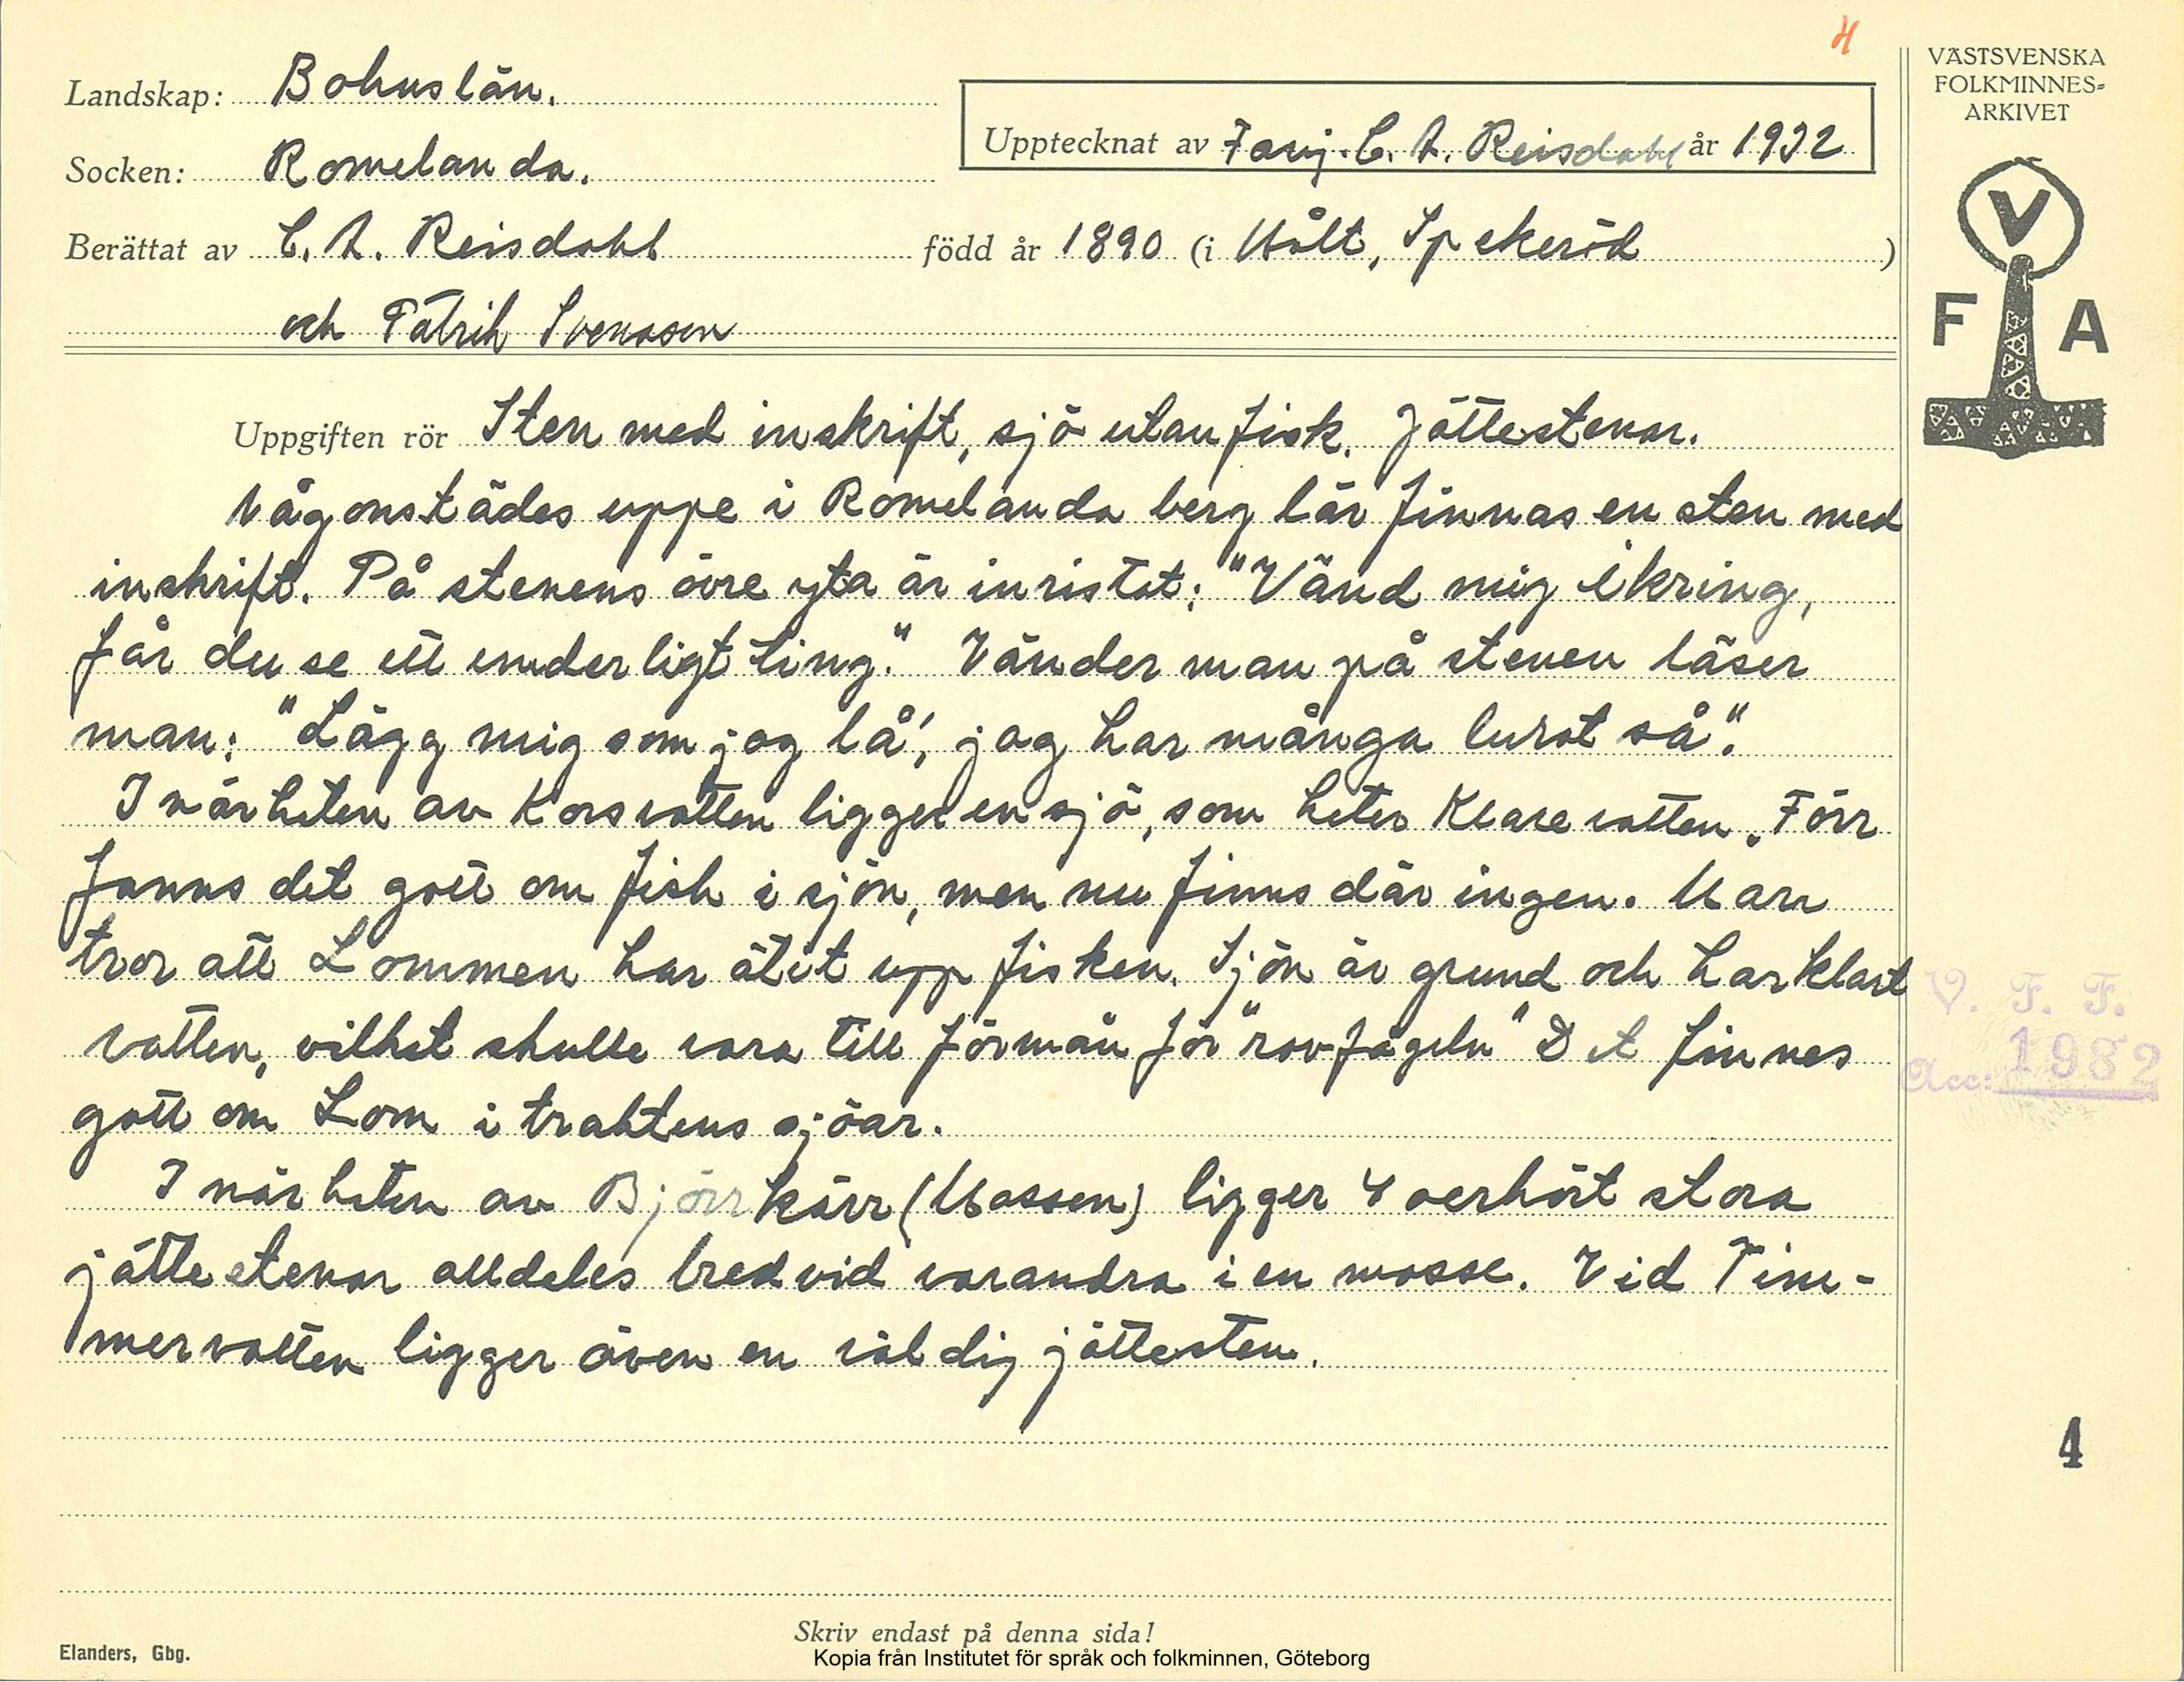 4
Landskap: Bohuslän.
VÄSTSVENSKA
FOLKMINNES-
ARKIVET
Upptecknat av Fanj. C. A. Reisdahl år 1932
Socken: Romelanda.
Berättat av C. A. Reisdahl född år 1890 (i Hålt, Spekeröd)
och Patrik Svensson
V
F A
Uppgiften rör Sten med inskrift, sjö utan fisk. Jättestenar.
Någonstädes uppe i Romelanda berg lär finnas en sten med
inskrift. På stenens övre yta är inristat: "Vänd mig ikring,
får du se ett underligt ting." Vänder man på stenen läser
man: "Lägg mig som jag lå', jag har många lurat så".
I närheten av Korsvatten ligger en sjö, som heter Klarevatten. Förr
fanns det gott om fisk i sjön, men nu finns där ingen. Man
tror att Lommen har ätit upp fisken. Sjön är grund och har klart
vatten, vilket skulle vara till förmån för "rovfågeln" Det finnes
gott om Lom i traktens sjöar.
I närheten av Björrkärr (Mossen) ligger 4 oerhört stora
jättestenar alldeles bredvid varandra i en mosse. Vid Tim-
mervatten ligger även en väldig jättesten.
V. F. F.
Acc: 1982
4
Skriv endast på denna sida!
Elanders, Gbg.
Kopia från Institutet för språk och folkminnen, Göteborg